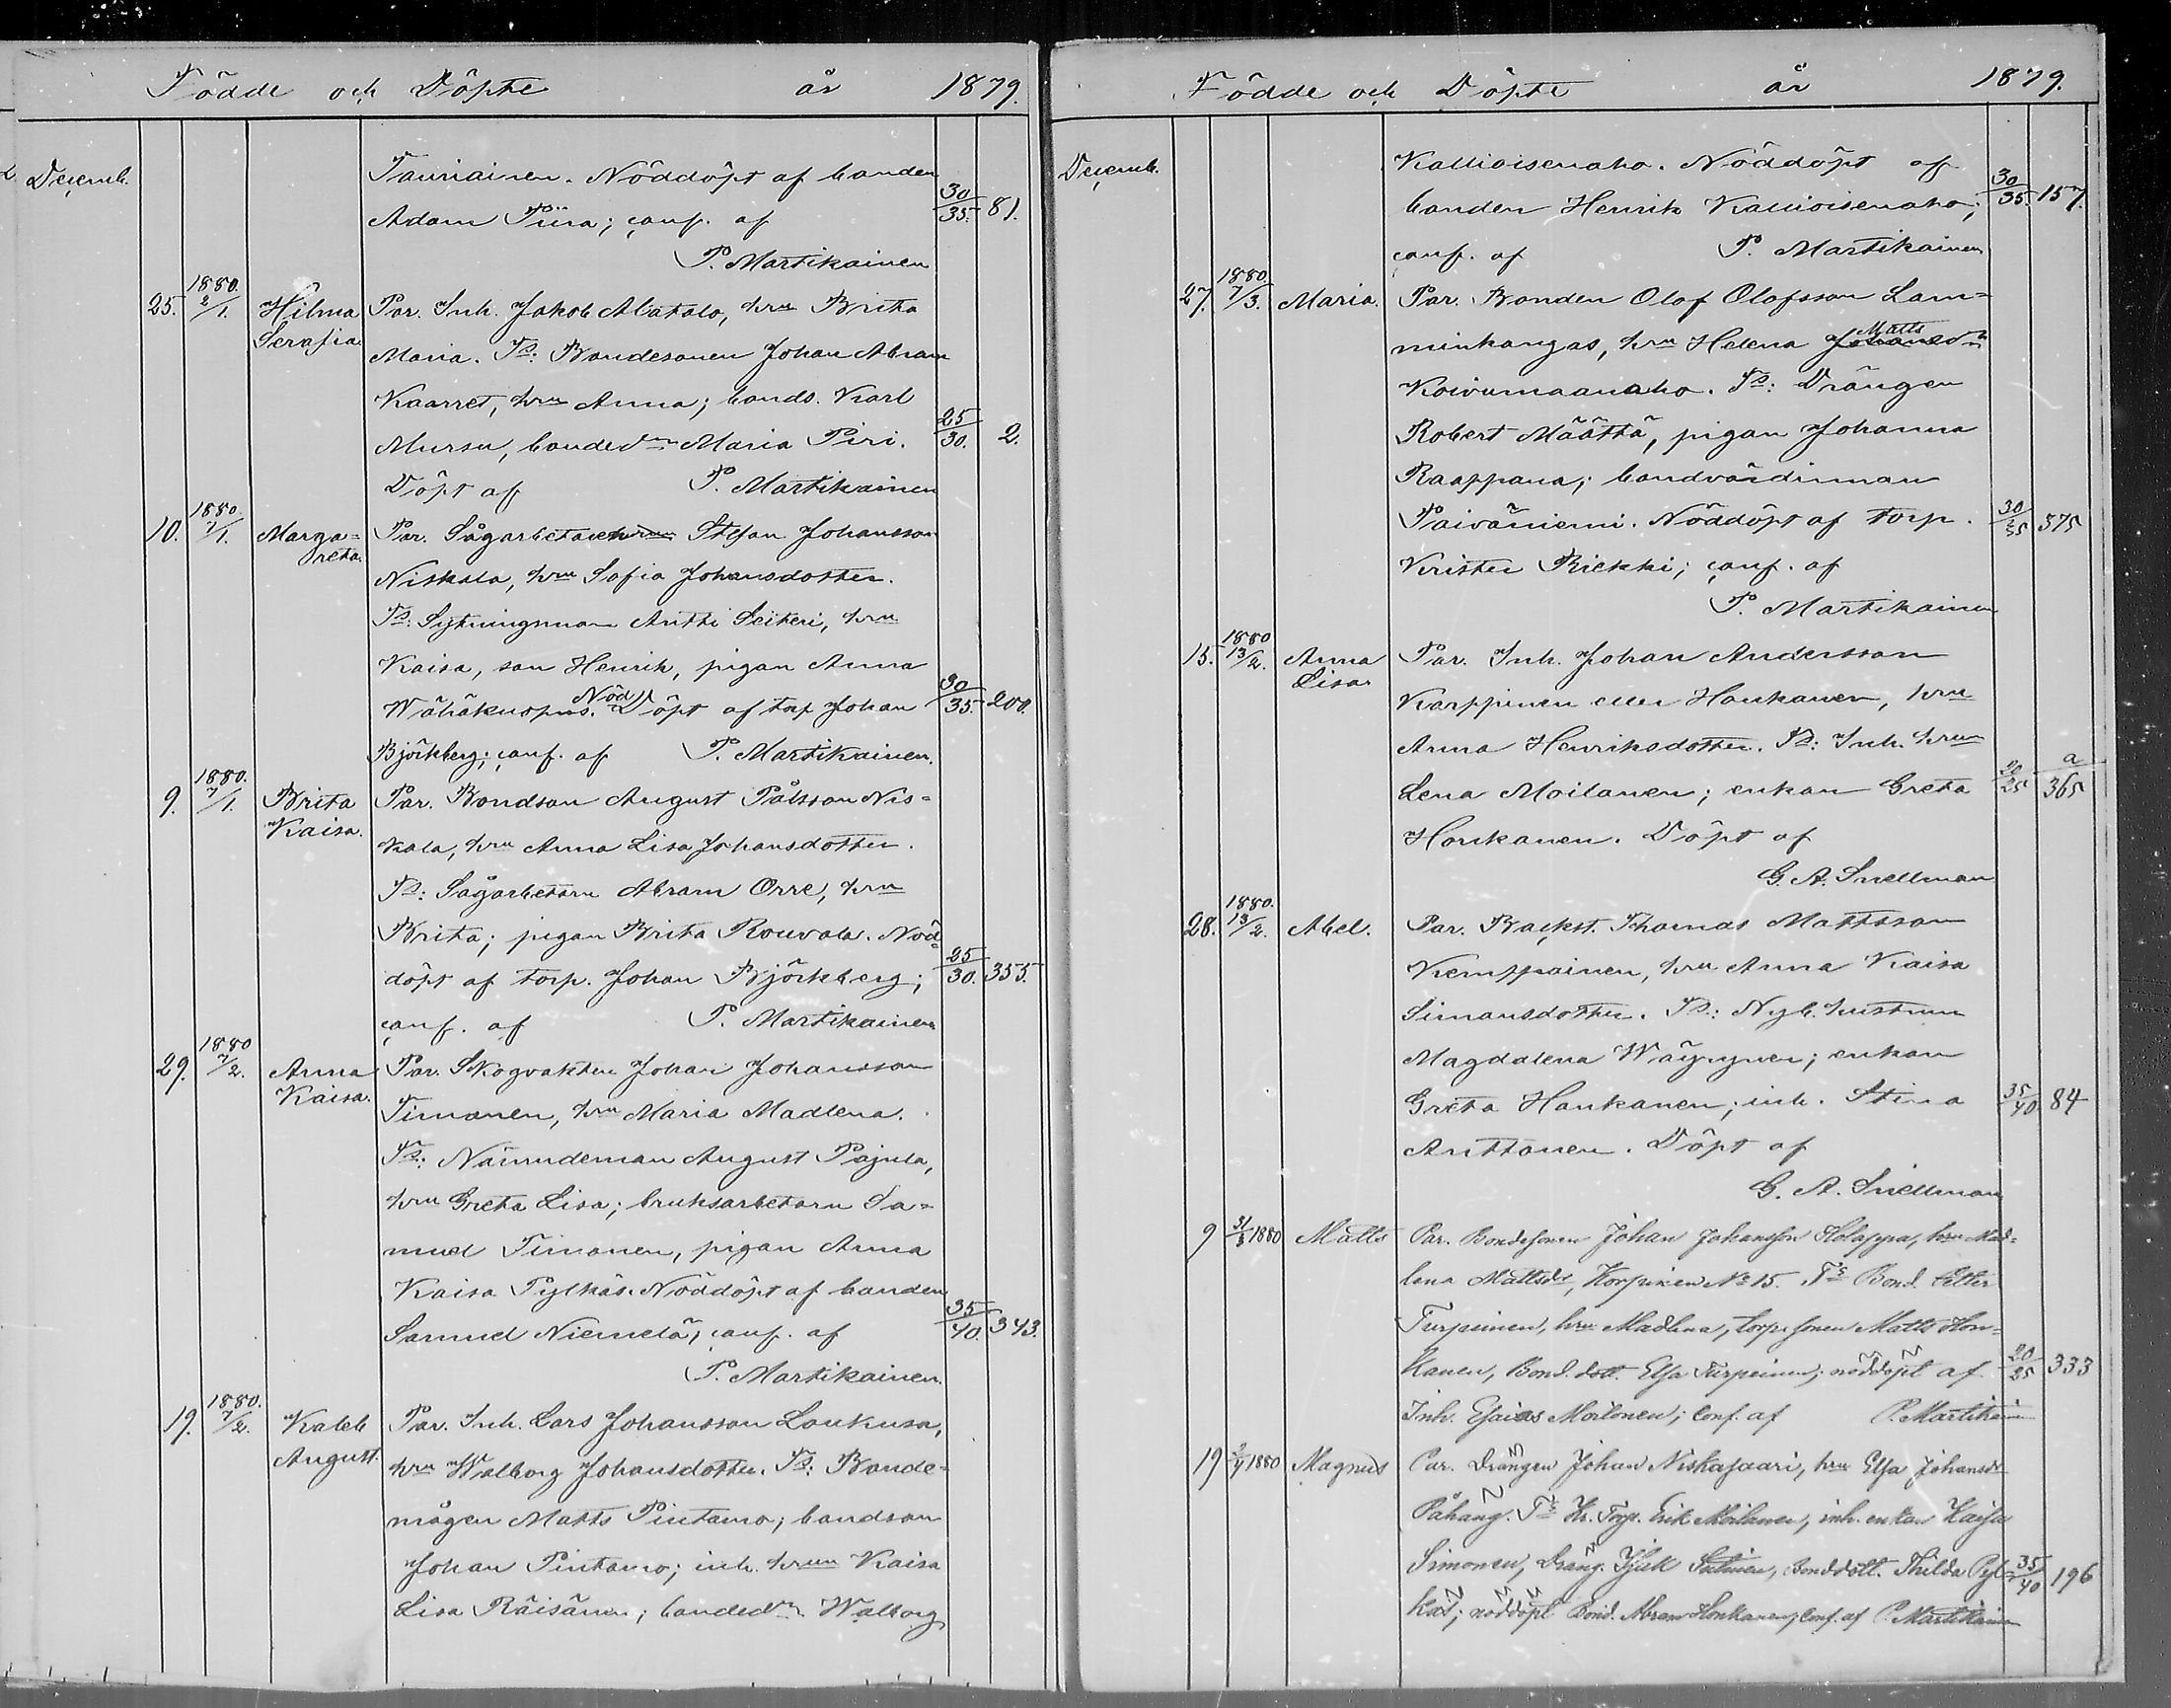 Födde och Döpte år 1879.
Decemb.
Tauriainen. Nöddöpt af bonden
Adam Tiira; conf. af 30/35. 81.
P. Martikainen
25. 1880. 2/1. Hilma Par. Inh. Jakob Alatalo, hru Brita
Serafia Maria. Ts: Bondesonen Johan Abram
Kaarret, hru Anna; bonds. Karl
Mursu, bondedr Maria Piri. 25/30. 2.
Döpt af P. Martikainen
10. 1880. 7/1. Marga= Par. Sågarbetaren Stefan Johansson
reta. Niskala, hru Sofia Johansdotter.
Ts: Sytningsman Antti Seiteri, hru
Kaisa, son Henrik, pigan Anna
Wähäkuopus. Nöd Döpt af torp Johan 30/35. 200.
Björkberg; conf. af P. Martikainen.
9. 1880. 7/1. Brita Par. Bondson August Pålsson Nis=
Kaisa. kala, hru Anna Lisa Johansdotter.
Ts: Sågarbetarn Abram Orre, hru
Brita; pigan Brita Rouvala. Nöd=
döpt af torp. Johan Björkberg; 25/30. 355.
conf. af P. Martikainen
29. 1880 7/2. Anna Par. Skogvakten Johan Johansson
Kaisa. Timonen, hru Maria Madlena.
Ts: Nämndeman August Pajula,
hru Greta Lisa; bruksarbetarn Sa=
muel Timonen, pigan Anna
Kaisa Pylkäs. Nöddöpt af bonden
Samuel Niemelä; conf. af 35/40. 343.
P. Martikainen.
19. 1880. 7/2. Kaleb Par. Inh. Lars Johansson Loukusa,
August. hru Walborg Johansdotter. Ts: Bonde=
mågen Matts Pintamo; bondson
Johan Pintamo; inh. hrun Kaisa
Lisa Räisänen; bondedr. Walborg
Födde och Döpte år 1879.
Decemb.
Kallioisenaho. Nöddöpt af
bonden Henrik Kallioisenaho; 30/35. 157.
conf. af P. Martikainen
27. 1880. 7/3. Maria. Par. Bonden Olof Olofsson Lam=
minkangas, hru Helena Johansdr Matts
Koivumaanaho. Ts: Drängen
Robert Määttä, pigan Johanna
Raappana; bondvärdinnan
Päiväniemi. Nöddöpt af torp. 30/35 375
Krister Riekki; conf. af
P. Martikainen
15. 1880 13/2. Anna Par. Inh. Johan Andersson
Lisa Karppinen eller Honkanen, hru
Anna Henriksdotter. Ts: Inh. hrun
Lena Moilanen; enkan Greta 20/25 a/365
Honkanen. Döpt af
G. A. Snellman
28. 1880. 13/2. Abel. Par. Backst. Thomas Mattsson
Kemppainen, hru Anna Kaisa
Simonsdotter. Ts: Nyb. hustrun
Magdalena Wäyrynen; enkan
Greta Honkanen; inh. Stina 35/40 84
Anttonen. Döpt af
G. A. Snellman
9 31/3 1880 Matts Par. Bondesonen Johan Johansson Holappa, hru Mad=
lena Mattsdr, Korpinen No 15. Ts Bond. Petter
Turpeinen, hru Madlena, torp. sonen Matts Hon=
kanen, Bond. dott. Elsa Turpeinen; nöddöpt af 20/25 333
Inh. Esaias Moilanen; Conf. af P. Martikain
19 1880 Magnus Par. Drängen Johan Niskasaari, hru Elsa Johansdr
Påhang. Ts Kr. Torp. Erik Moilanen, inh. enkan Kaisa
Simonen, Dräng. Isak Bonddott. Thilda Pyl= 35/40 196
käs; nöddöpt Bond. Abram Honkanen; Conf. af P. Martikain